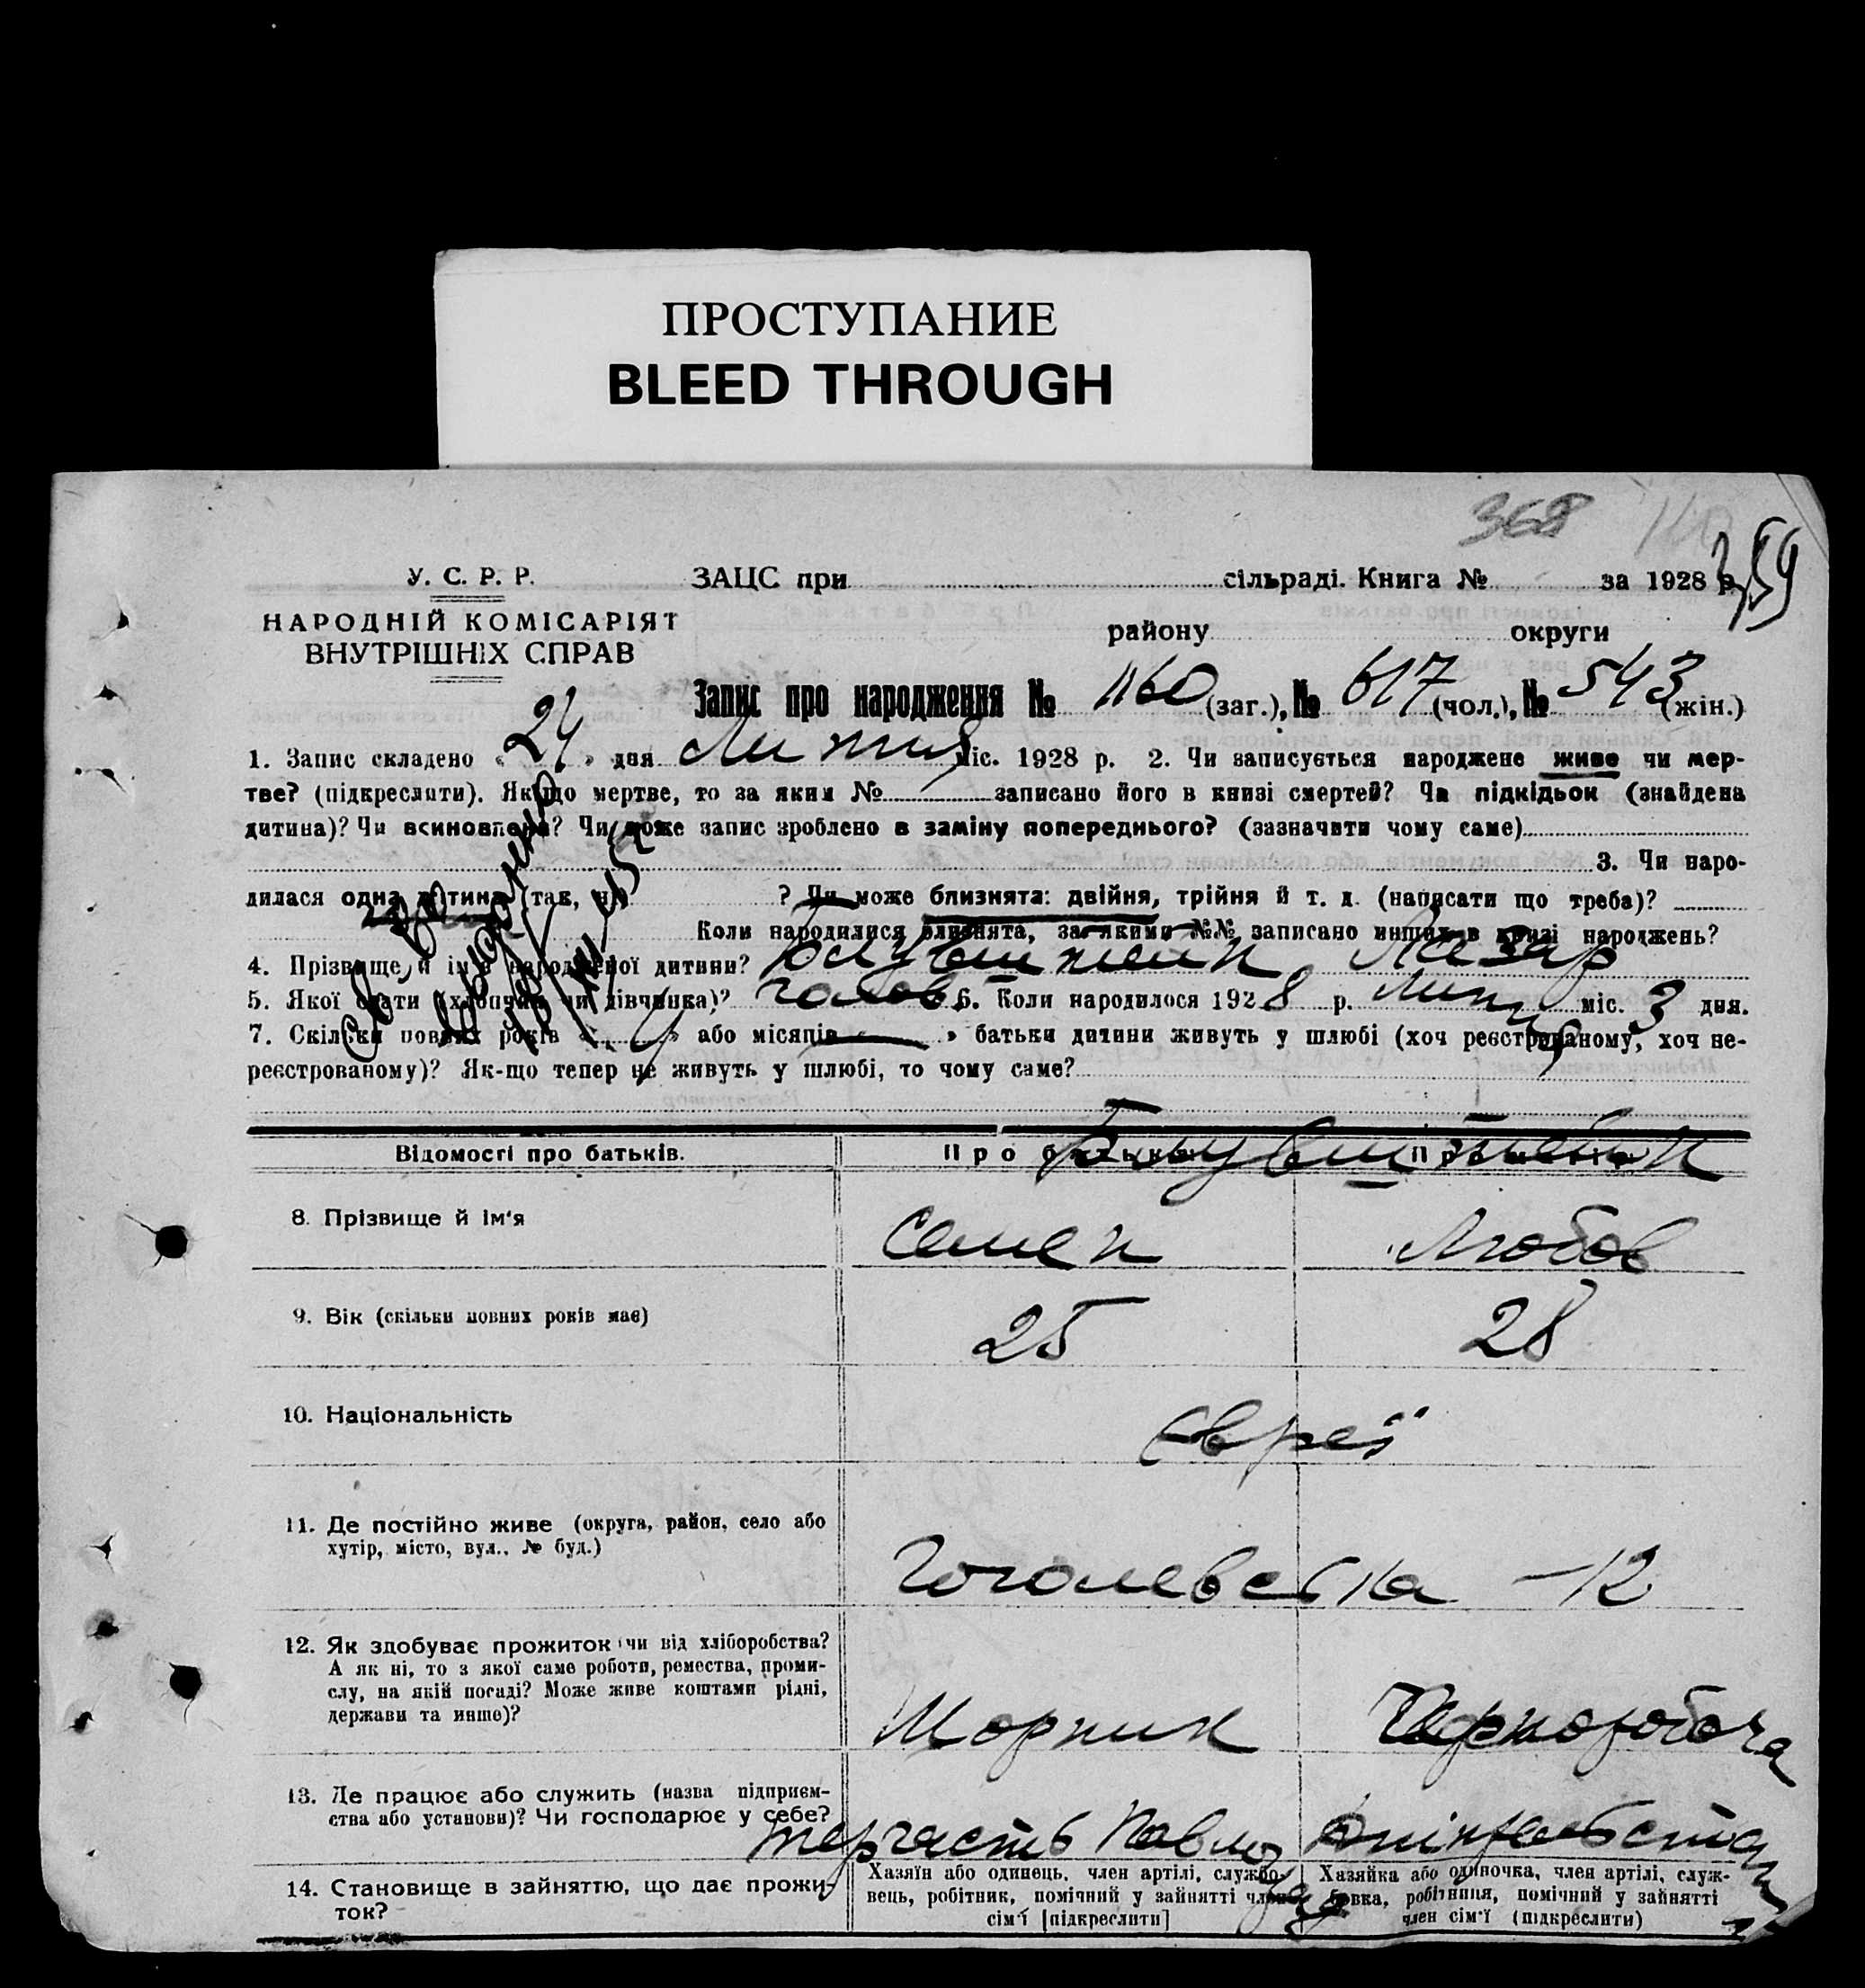 ПРОСТУПАНИЕ
BLEED THROUGH
368
359
У. С. Р. Р. ЗАЦС при сільраді. Книга № за 1928 р.
НАРОДНІЙ КОМІСАРІЯТ
ВНУТРІШНІХ СПРАВ
району округи
Запис про народження № 1160 (заг.), № 617 (чол.), № 543 (жін.)
1. Запис складено « 24 » дня Липня міс. 1928 р. 2. Чи записується народжене живе чи мер-
тве? (підкреслити). Якщо мертве, то за яким № записано його в книзі смертей? Чи підкідьок (знайдена
дитина)? Чи всиновлена? Чи може запис зроблено в заміну попереднього? (зазначити чому саме)
3. Чи наро-
дилася одна дитина (так, ні) ? Чи може близнята: двійня, трійня й т. д. (написати що треба)?
Коли народилися близнята, за якими №№ записано инших в книзі народжень?
4. Прізвище й ім'я народженої дитини? Лазар
5. Якої стати (хлопчик чи дівчинка)? 6. Коли народилося 1928 р. Липня міс. 3 дня.
7. Скільки повних років « » або місяців « » батьки дитини живуть у шлюбі (хоч реєстрованому, хоч не-
реєстрованому)? Як-що тепер не живуть у шлюбі, то чому саме?
Відомості про батьків. Про батька Про матір
8. Прізвище й ім'я Семен Любов
9. Вік (скільки повних років має) 25 28
10. Національність Євреї
11. Де постійно живе (округа, район, село або
хутір, місто, вул., № буд.)
Гоголевська - 12
12. Як здобуває прожиток чи від хліборобства?
А як ні, то з якої саме роботи, ремества, проми-
слу, на якій посаді? Може живе коштами рідні,
держави та инше)?
Шорник Чорноробоча
13. Де працює або служить (назва підприєм-
ства або установи)? Чи господарює у себе?
14. Становище в зайняттю, що дає прожи-
ток?
Хазяїн або одинець, член артілі, службо-
вець, робітник, помічний у зайнятті член
сім'ї [підкреслити]
Хазяйка або одиночка, член артілі, служ-
бовка, робітниця, помічний у зайнятті
член сім'ї (підкреслити)